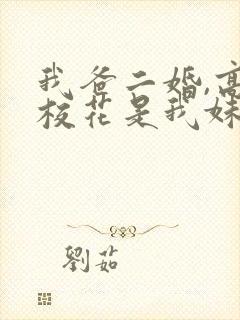 我爸二婚,高
校花是我妹
劉茹